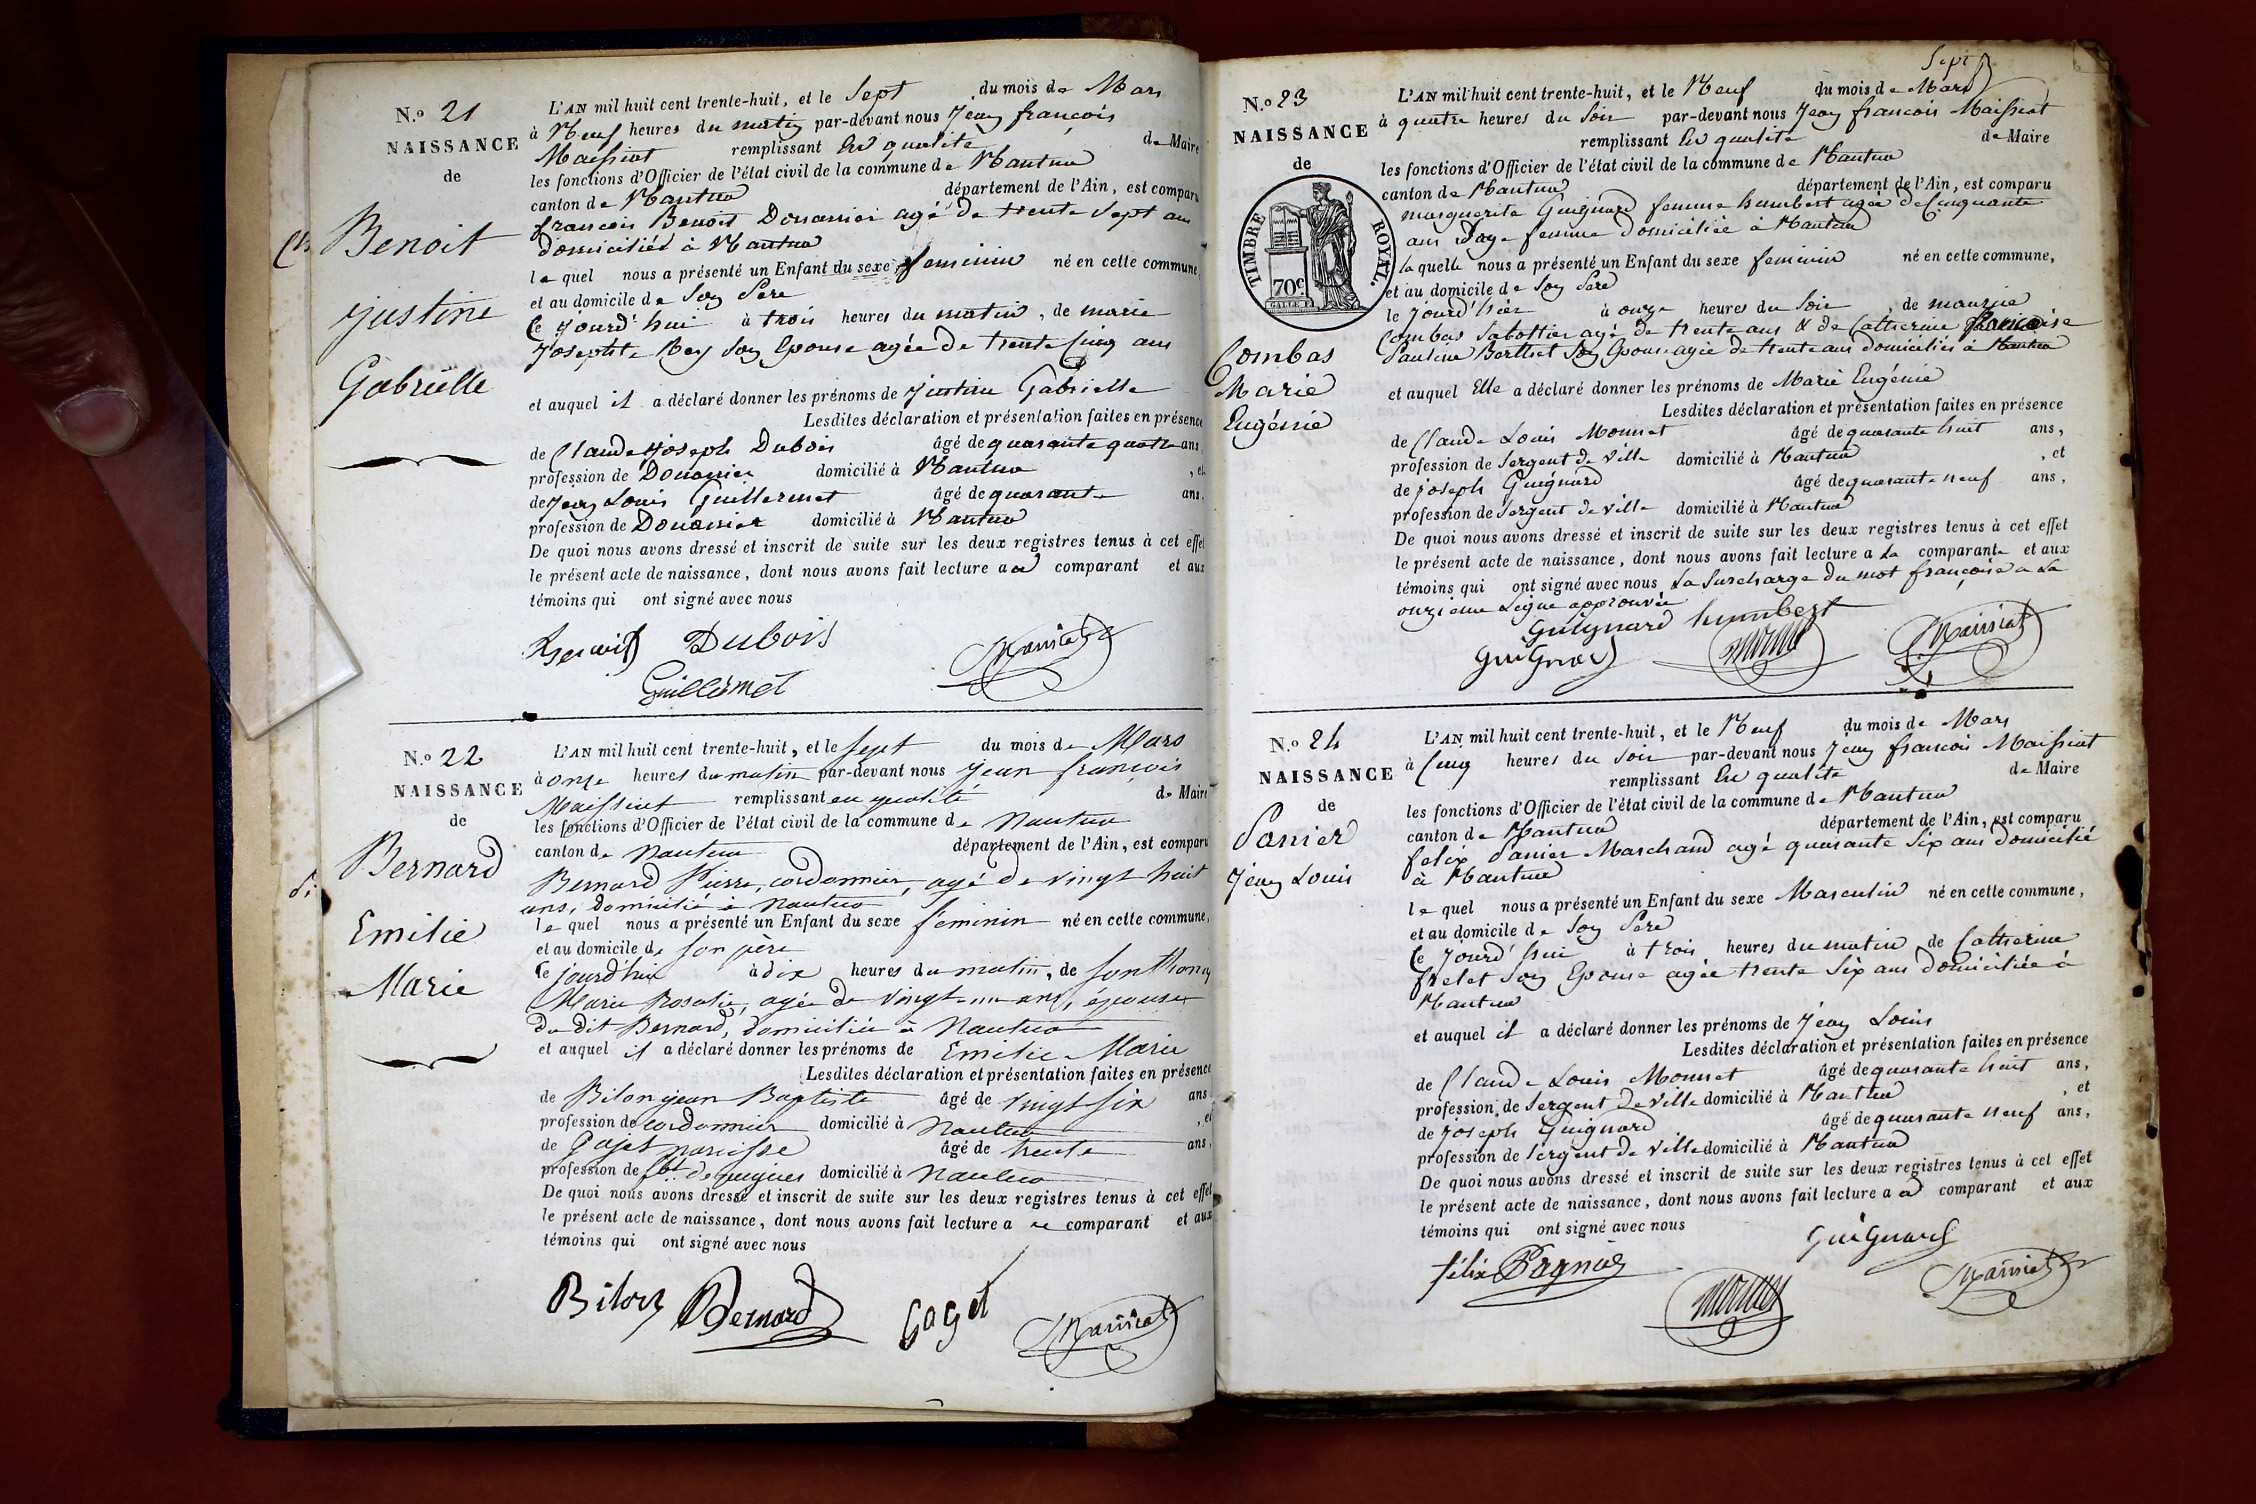 N.o 21
NAISSANCE
de
Benoit
justine
Gabrielle
L'AN mil huit cent trente-huit, et le Sept du mois de Mars
à Neuf heures du matin par-devant nous Jean françois
Maissiat remplissant en qualité de Maire
les fonctions d'Officier de l'état civil de la commune de Nantua
canton de Nantua département de l'Ain, est comparu
françois Benoit Douanier agé de trente Sept ans
domicilié à Nantua
le quel nous a présenté un Enfant du sexe feminin né en cette commune,
et au domicile de Son Pere
Ce jourd'hui à trois heures du matin, de marie
Josephte Rey Son Epouse agée de trente Cinq ans
et auquel il a déclaré donner les prénoms de Justine Gabrielle
Lesdites déclaration et présentation faites en présence
de Claude Joseph Dubois âgé de quarante quatre ans,
profession de Douanier domicilié à Nantua, et
de Jean Louis Guillermet âgé de quarante ans,
profession de Douanier domicilié à Nantua
De quoi nous avons dressé et inscrit de suite sur les deux registres tenus à cet effet
le présent acte de naissance, dont nous avons fait lecture a comparant et aux
témoins qui ont signé avec nous
Benoit Dubois Maissiat
Guillermet
N.o 22
NAISSANCE
de
Bernard
Emilie
Marie
L'AN mil huit cent trente-huit, et le Sept du mois de Mars
à onze heures du matin par-devant nous jean françois
Maissiat remplissant en qualité de Maire
les fonctions d'Officier de l'état civil de la commune de Nantua
canton de Nantua département de l'Ain, est comparu
Bernard Pierre, cordonnier, agé de vingt huit
ans, domicilié à Nantua
le quel nous a présenté un Enfant du sexe féminin né en cette commune,
et au domicile de son père
Ce jourd'hui à dix heures du matin, de Sonthonay
Marie Rosalie, agée de vingt-un ans, épouse
du dit Bernard, domiciliée à Nantua
et auquel il a déclaré donner les prénoms de Emilie Marie
Lesdites déclaration et présentation faites en présence
de Bilon jean Baptiste âgé de vingt six ans
profession de cordonnier domicilié à Nantua, et
de Gaget narcisse âgé de trente ans,
profession de domicilié à Nantua
De quoi nous avons dressé et inscrit de suite sur les deux registres tenus à cet effet
le présent acte de naissance, dont nous avons fait lecture a comparant et aux
témoins qui ont signé avec nous
Bilon Bernard Gaget Maissiat
Sept
N.o 23
NAISSANCE
de
TIMBRE ROYAL.
70c.
Combas
Marie
Eugénie
L'AN mil huit cent trente-huit, et le Neuf du mois de Mars
à quatre heures du Soir par-devant nous Jean françois Maissiat
remplissant en qualité de Maire
les fonctions d'Officier de l'état civil de la commune de Nantua
canton de Nantua département de l'Ain, est comparu
marguerite Guignard femme humbert agée de Cinquante
ans Sage femme domiciliée à Nantua
la quelle nous a présenté un Enfant du sexe feminin né en cette commune,
et au domicile de Son Pere
le Jourd'hier à onze heures du Soir, de maurice
Combas Sabottier agé de trente ans & de Catherine françoise
Pauline Berthet Son Epouse agée de trente ans domiciliés à Nantua
et auquel Elle a déclaré donner les prénoms de Marie Eugénie
Lesdites déclaration et présentation faites en présence
de Claude Louis Mounet âgé de quarante huit ans,
profession de Sergent de Ville domicilié à Nantua, et
de joseph Guignard âgé de quarante neuf ans,
profession de Sergent de ville domicilié à Nantua
De quoi nous avons dressé et inscrit de suite sur les deux registres tenus à cet effet
le présent acte de naissance, dont nous avons fait lecture a la comparante et aux
témoins qui ont signé avec nous La Surcharge du mot françoise a La
onzieme Ligne approuvée
Guignard humbert
Guignard Maissiat
N.o 24
NAISSANCE
de
Panier
Jean Louis
L'AN mil huit cent trente-huit, et le Neuf du mois de Mars
à Cinq heures du Soir par-devant nous Jean françois Maissiat
remplissant en qualité de Maire
les fonctions d'Officier de l'état civil de la commune de Nantua
canton de Nantua département de l'Ain, est comparu
felix Panier Marchand agé quarante Six ans domicilié
à Nantua
le quel nous a présenté un Enfant du sexe Masculin né en cette commune,
et au domicile de Son Pere
Ce Jourd'hui à trois heures du matin de Catherine
frelet Son Epouse agée trente Six ans domiciliée à
Nantua
et auquel il a déclaré donner les prénoms de Jean Louis
Lesdites déclaration et présentation faites en présence
de Claude Louis Mounet âgé de quarante huit ans,
profession de Sergent de Ville domicilié à Nantua, et
de Joseph Guignard âgé de quarante neuf ans,
profession de Sergent de Ville domicilié à Nantua
De quoi nous avons dressé et inscrit de suite sur les deux registres tenus à cet effet
le présent acte de naissance, dont nous avons fait lecture a comparant et aux
témoins qui ont signé avec nous
Guignard
félix Maissiat